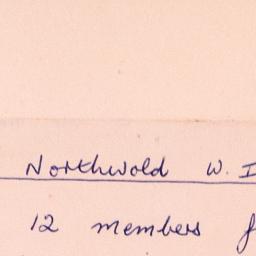 Northwold W. I
12 members f